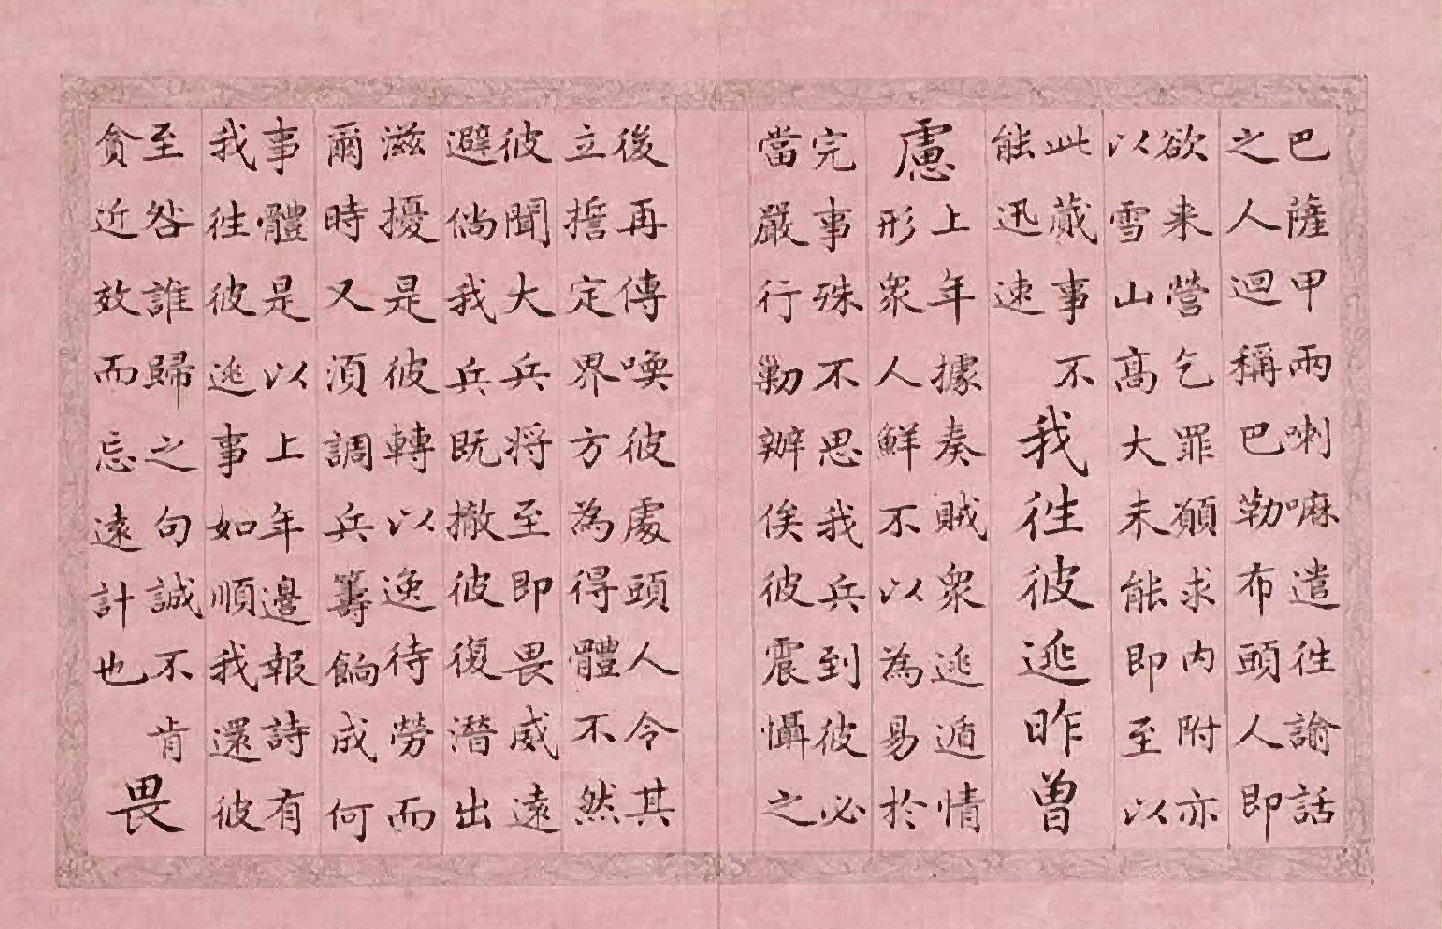 巴薩甲兩喇嘛遣往諭話
之人迴稱巴勒布頭人即
欲来營乞罪願求内附亦
以雪山高大未能即至以
此蕆事不
能迅速
我往彼逃昨曽
慮
上年據奏賊衆逃遁情
形衆人鮮不以為易於
完事殊不思我兵到彼必
當嚴行勦辦俟彼震懾之
後再傳喚彼處頭人令其
立誓定界方為得體不然
彼聞大兵将至即畏威遠
避倘我兵既撤彼復潛出
滋擾是彼轉以逸待勞而
爾時又湏調兵籌餉成何
事體是以上年邊報詩有
我往彼逃事如順我還彼
至咎誰歸之句誠不肯
貪近效而忘遠計也
畏